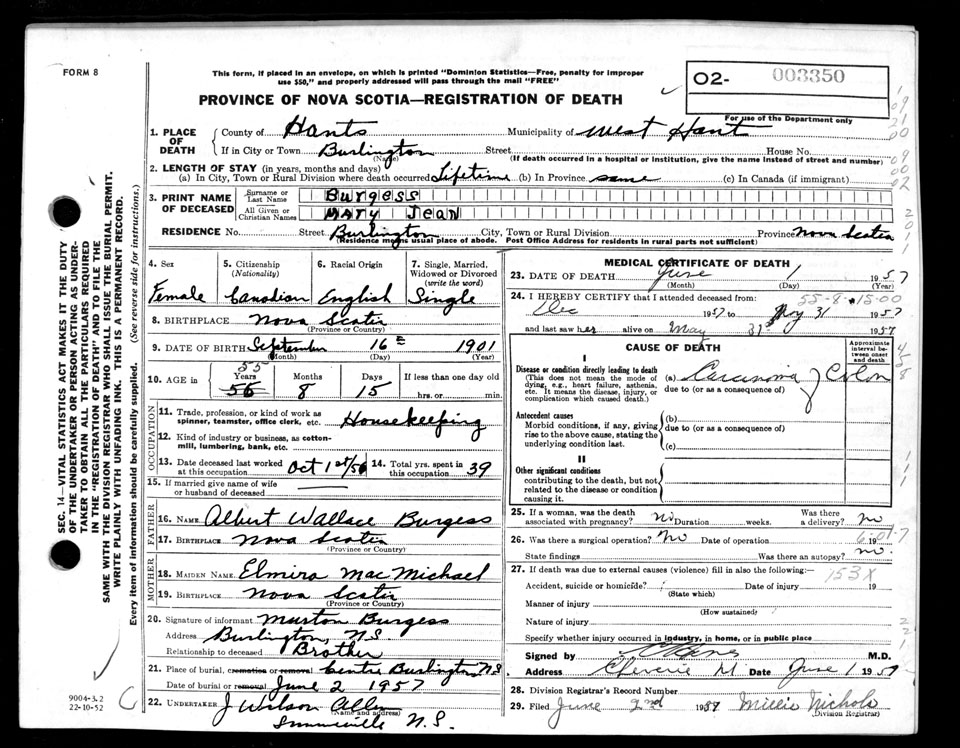 FORM 8
This form, if placed in an envelope, on which is printed "Dominion Statistics—Free, penalty for improper
use $50," and properly addressed will pass through the mail "FREE"
PROVINCE OF NOVA SCOTIA—REGISTRATION OF DEATH
O2- 003350
For use of the Department only
1. PLACE OF DEATH County of Hants Municipality of West Hant
If in City or Town Burlington Street House No.
(Name) (If death occurred in a hospital or institution, give the name instead of street and number)
2. LENGTH OF STAY (in years, months and days)
(a) In City, Town or Rural Division where death occurred Lifetime (b) In Province same (c) In Canada (if immigrant)
3. PRINT NAME OF DECEASED Surname or Last Name Burgess
All Given or Christian Names MARY Jean
RESIDENCE No. Street Burlington City, Town or Rural Division Province Nova Scotia
(Residence means usual place of abode. Post Office Address for residents in rural parts not sufficient)
4. Sex Female
5. Citizenship (Nationality) Canadian
6. Racial Origin English
7. Single, Married, Widowed or Divorced (write the word) Single
8. BIRTHPLACE Nova Scotia
(Province or Country)
9. DATE OF BIRTH September 16 1901
(Month) (Day) (Year)
10. AGE in 55 Years 56 Months 8 Days 15 If less than one day old
hrs. or min.
OCCUPATION
11. Trade, profession, or kind of work as
spinner, teamster, office clerk, etc. Housekeeping
12. Kind of industry or business, as cotton-
mill, lumbering, bank, etc.
13. Date deceased last worked at this occupation Oct 1st/56 14. Total yrs. spent in this occupation 39
15. If married give name of wife
or husband of deceased
FATHER
16. NAME Albert Wallace Burgess
17. BIRTHPLACE Nova Scotia
(Province or Country)
MOTHER
18. MAIDEN NAME Elmira MacMichael
19. BIRTHPLACE Nova Scotia
(Province or Country)
20. Signature of informant Burgess
Address Burlington, N.S
Relationship to deceased Brother
21. Place of burial, cremation or removal Centre Burlington N.S
Date of burial or removal June 2 1957
22. UNDERTAKER J Wilson Allen
(Name and address)
N.S.
MEDICAL CERTIFICATE OF DEATH
23. DATE OF DEATH June 1 1957
(Month) (Day) (Year)
55-8-15-00
24. I HEREBY CERTIFY that I attended deceased from:
Dec 1957 to May 31 1957
and last saw her alive on May 31st 1957
CAUSE OF DEATH
Approximate interval between onset and death
I
Disease or condition directly leading to death
(This does not mean the mode of
dying, e.g., heart failure, asthenia,
etc. It means the disease, injury, or
complication which caused death.)
(a) Carcinoma of Colon
due to (or as a consequence of)
Antecedent causes
Morbid conditions, if any, giving
rise to the above cause, stating the
underlying condition last.
(b)
due to (or as a consequence of)
(c)
II
Other significant conditions
contributing to the death, but not
related to the disease or condition
causing it.
25. If a woman, was the death
associated with pregnancy? no Duration weeks. Was there a delivery? no
26. Was there a surgical operation? No Date of operation 19
State findings Was there an autopsy? no.
27. If death was due to external causes (violence) fill in also the following:—
153X
Accident, suicide or homicide? Date of injury 19
(State which)
Manner of injury
(How sustained)
Nature of injury
Specify whether injury occurred in industry, in home, or in public place
Signed by M.D.
Address Cheverie Date June 1 1957
28. Division Registrar's Record Number
29. Filed June 2nd 1957 Millie Nichols
(Division Registrar)
9004-3.2
22-10-52
SEC. 14—VITAL STATISTICS ACT MAKES IT THE DUTY
OF THE UNDERTAKER OR PERSON ACTING AS UNDER-
TAKER TO OBTAIN ALL THE PARTICULARS REQUIRED
IN THE "REGISTRATION OF DEATH" AND TO FILE THE
SAME WITH THE DIVISION REGISTRAR WHO SHALL ISSUE THE BURIAL PERMIT.
WRITE PLAINLY WITH UNFADING INK. THIS IS A PERMANENT RECORD.
Every item of information should be carefully supplied. (See reverse side for instructions.)